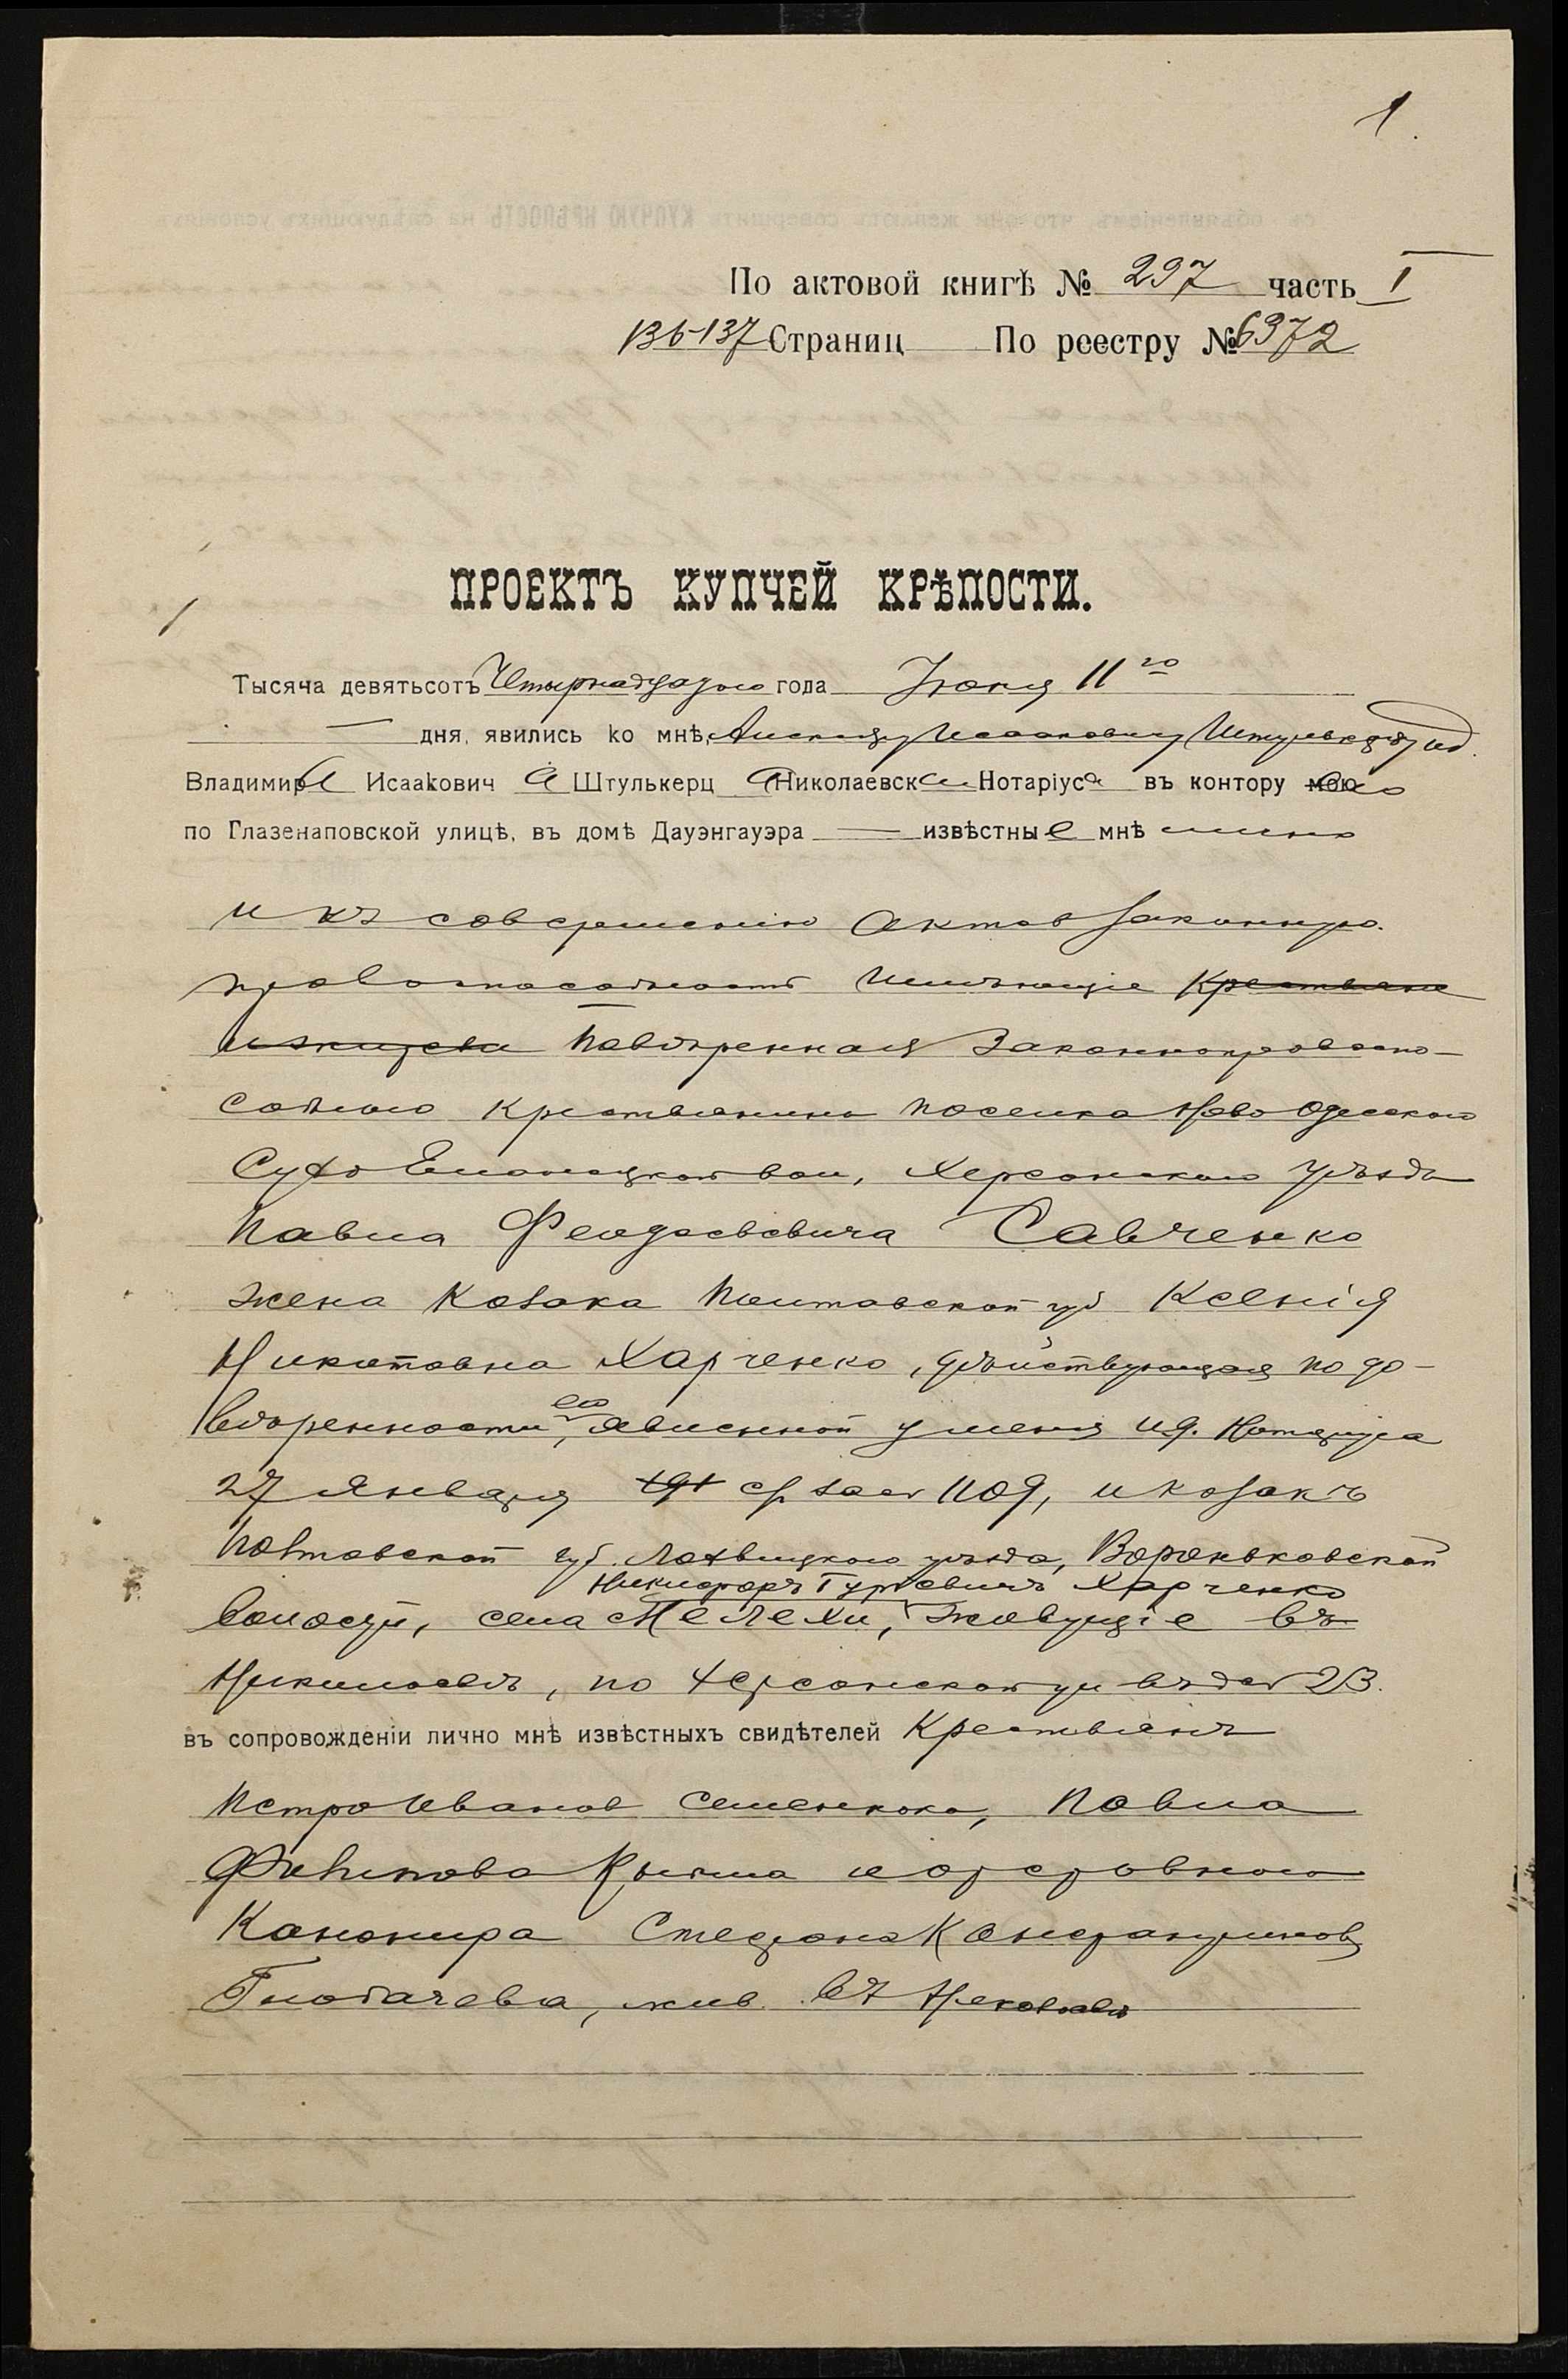 1.
По актовой книгѣ № 297 часть I
136-137 Страниц По реестру № 6372
ПРОЕКТЪ КУПЧЕЙ КРѢПОСТИ.
Тысяча девятьсотъ Четырнадцатого года Іюня 11го
дня, явились ко мнѣ, Исааковичу Штулькерцу ид.
Владимира Исааковича Штулькерца Николаевска Нотаріуса въ контору мою его
по Глазенаповской улицѣ, въ домѣ Дауэнгауэра извѣстные мнѣ лично
и къ совершенію актов законную
правоспособность имѣющіе Крестьяне
повѣренная законноправоспо-
собного крестьянина поселка Ново Одесского
Сухо Еланецкой вол, Херсонского уѣзда
Павла Феодосьевича Савченко
жена козака Полтавской губ Ксенія
Никитовна Харченко, дѣйствующая по до-
вѣренности его, явленной у меня ид. Нотаріуса
27 Января с/г за № 1109, и козакъ
Полтавской губ. Лохвицкого уѣзда, Вороньковской
Никифоръ Гурьевичъ Харченко
волости, села Мелехи, живущіе въ
Николаевѣ, по Херсонской ул въ дом 23.
въ сопровожденіи лично мнѣ извѣстныхъ свидѣтелей Крестьянъ
Петра Иванов Семенкова, Павла
Филипова и
Канонира Стефана
живъ въ Николаевѣ